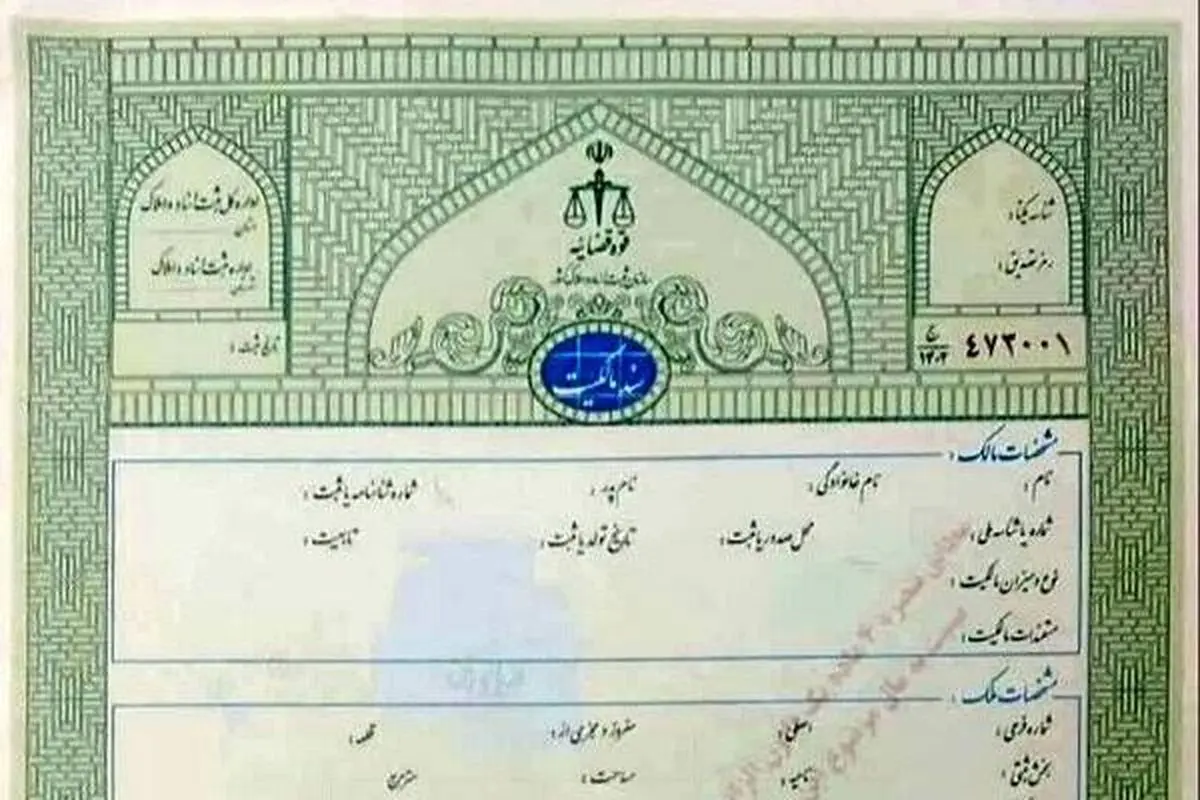 قوه قضائیه
سازمان ثبت اسناد و املاک کشور
شناسه یکتا:
رمز تصدیق:
۴۷۳۰۰۱ ج ۱۴۰۲
اداره کل ثبت اسناد و املاک
استان
اداره ثبت اسناد و املاک
شهرستان
تاریخ ثبت:
سند مالکیت
مشخصات مالک:
نام: نام خانوادگی: نام پدر: شماره شناسنامه یا ثبت:
شماره یا شناسه ملی: محل صدور یا ثبت: تاریخ تولد یا ثبت: تابعیت:
نوع و میزان مالکیت:
مستندات مالکیت:
مشخصات ملک:
شماره فرعی: اصلی: مفروز و مجزی از: قطعه:
بخش ثبتی: ناحیه: مساحت: مترمربع